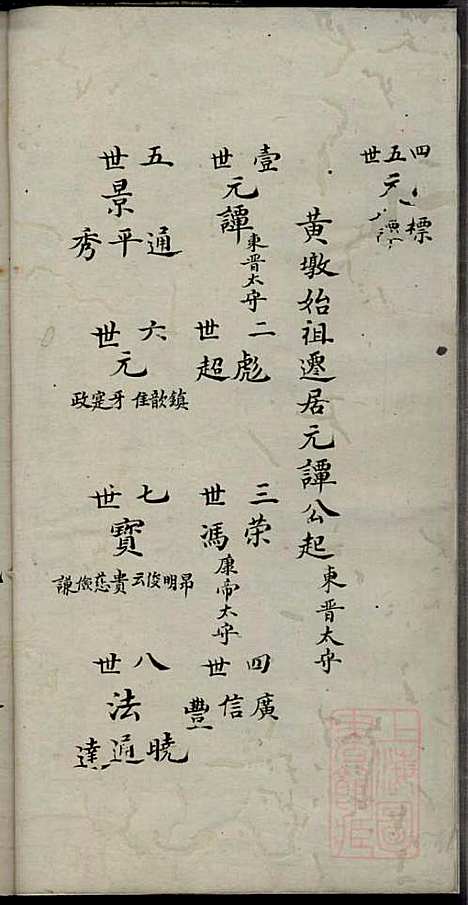 四五世
標
元
黃墩始祖遷居元譚公起 東晋太守
壹世
元譚 東晋太守
二世
彪 超
三世
荣 馮 康帝太守
四世
廣 信 豐
五世
景
通 平 秀
六世
元
鎮 歆 隹 牙 寔 政
七世
寶
昂 明 俊 云 貴 慈 儉 謙
八世
法
曉 通 達
上海圖書館藏